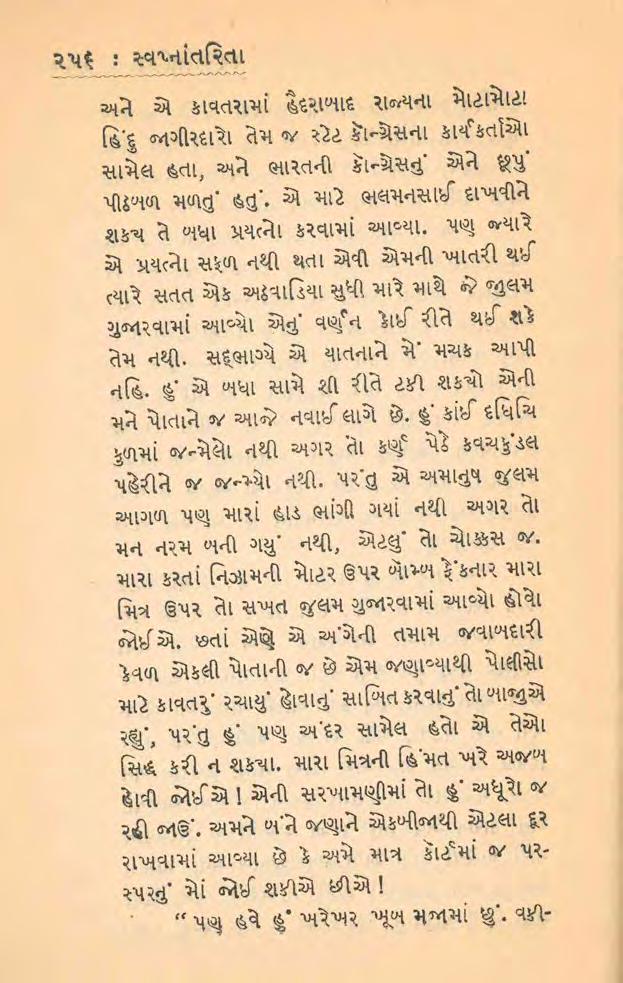 ૨૫૬ : સ્વપ્નાંતરિતા
અને એ કાવતરામાં હૈદરાબાદ રાજ્યના મોટામોટા
હિંદુ જાગીરદારો તેમ જ સ્ટેટ કૉન્ગ્રેસના કાર્યકર્તાઓ
સામેલ હતા, અને ભારતની કૉન્ગ્રેસનું એને છૂપું
પીઠબળ મળતું હતું. એ માટે ભલમનસાઈ દાખવીને
શકય તે બધા પ્રયત્નો કરવામાં આવ્યા. પણ જ્યારે
એ પ્રયત્નો સફળ નથી થતા એવી એમની ખાતરી થઈ
ત્યારે સતત એક અઠવાડિયા સુધી મારે માથે જે જુલમ
ગુજારવામાં આવ્યો એનું વર્ણન કોઈ રીતે થઈ શકે
તેમ નથી. સદ્ભાગ્યે એ યાતનાને મેં મચક આપી
નહિ. હું એ બધા સામે શી રીતે ટકી શકયો એની
મને પોતાને જ આજે નવાઈ લાગે છે. હું કાંઈ દધિચિ
કુળમાં જન્મેલો નથી અગર તો કર્ણ પેઠે કવચકુંડલ
પહેરીને જ જન્મ્યો નથી. પરંતુ એ અમાનુષ જુલમ
આગળ પણ મારાં હાડ ભાંગી ગયાં નથી અગર તો
મન નરમ બની ગયું નથી, એટલું તો ચોક્કસ જ.
મારા કરતાં નિઝામની મોટર ઉપર બૉમ્બ ફેંકનાર મારા
મિત્ર ઉપર તો સખત જુલમ ગુજારવામાં આવ્યો હોવો
જોઈએ. છતાં એણે એ અંગેની તમામ જવાબદારી
કેવળ એકલી પોતાની જ છે એમ જણાવ્યાથી પોલીસો
માટે કાવતરું રચાયું હોવાનું સાબિત કરવાનું તો બાજુએ
રહ્યું, પરંતુ હું પણ અંદર સામેલ હતો એ તેઓ
સિદ્ધ કરી ન શકયા. મારા મિત્રની હિંમત ખરે અજબ
હોવી જોઈએ! એની સરખામણીમાં તો હું અધૂરો જ
રહી જાઉં. અમને બંને જણાને એકબીજાથી એટલા દૂર
રાખવામાં આવ્યા છે કે અમે માત્ર કૉર્ટમાં જ પર-
સ્પરનું મોં જોઈ શકીએ છીએ!
“પણ હવે હું ખરેખર ખૂબ મજામાં છું. વકી-